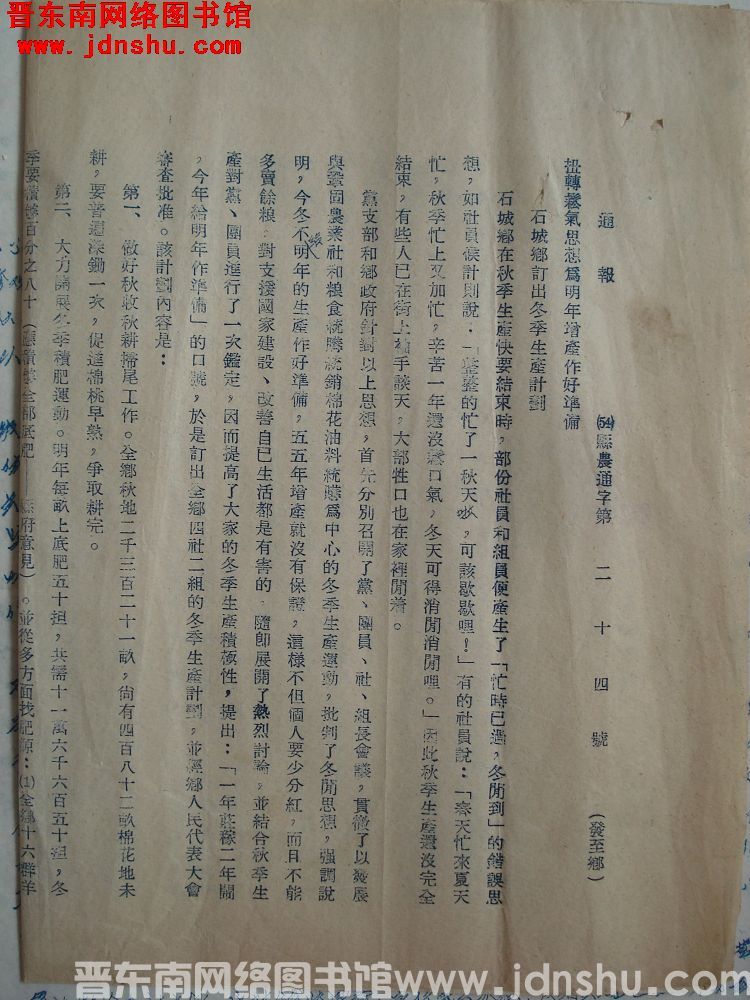 晋东南网络图书馆
www.jdnshu.com
通報　㊴縣農通字第二十四號　（發至鄉）
扭轉鬆氣思想爲明年增產作好準備
石城鄉訂出冬季生產計劃
石城鄉在秋季生產快要結束時，部份社員和組員便產生了「忙時已過，冬閒到」的錯誤思
想，如社員侯計則說：「整整的忙了一秋天啦，可該歇歇哩！」有的社員說：「春天忙來夏天
忙，秋季忙上又加忙，辛苦一年還沒鬆口氣，冬天可得消閒消閒哩。」因此秋季生產還沒完全
結束，有些人已在街上袖手談天，大部牲口也在家裡閒着。
黨支部和鄉政府針對以上思想，首先分別召開了黨、團員、社、組長會議，貫徹了以發展
與鞏固農業社和粮食統購統銷棉花油料統購爲中心的冬季生產運動，批判了冬閒思想，强調說
明，今冬不給明年的生產作好準備，五五年增產就沒有保證，這樣不但個人要少分紅，而且不能
多賣餘粮，對支援國家建設、改善自已生活都是有害的，隨卽展開了熱烈討論，並結合秋季生
產對黨、團員進行了一次鑑定，因而提高了大家的冬季生產積極性，提出：「一年莊稼二年鬧
，今年給明年作準備」的口號，於是訂出全鄉四社二組的冬季生產計劃，並經鄉人民代表大會
審查批准。該計劃內容是：
第一、做好秋收秋耕掃尾工作。全鄉秋地二千三百二十一畝，尙有四百八十二畝棉花地未
耕，要普遍深鋤一次，促進棉桃早熟，爭取耕完。
第二、大力開展冬季積肥運動。明年每畝上底肥五十担，共需十一萬六千六百五十担，冬
季要積够百分之八十（應積够全部底肥——縣府意見）。並從多方面找肥源：⑴全鄉十六群羊
晋东南网络图书馆www.jdnshu.com